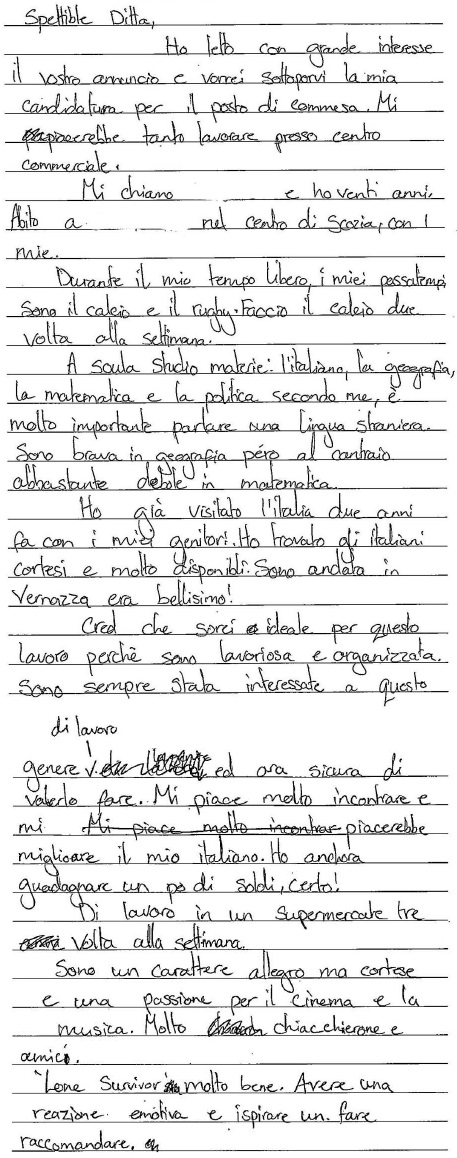 Spettible Ditta,
Ho letto con grande interesse
il vostro annuncio e vorrei sottoporvi la mia
candidatura per il posto di commesa. Mi
piacerebbe tanto lavorare presso centro
commerciale.
Mi chiamo e ho venti anni.
Abito a nel centro di Scozia, con I
mie.
Durante il mio tempo libero, i miei passatempi
sono il calcio e il rugby. Faccio il calcio due
volta alla settimana.
A scula studio materie: l'italiano, la geografia,
la matematica e la politica secondo me, è
molto importante parlare una lingua straniera.
Sono brava in geografia péro al contraio
abbastante debole in matematica.
Ho già visitato l'italia due anni
fa con i miei genitori. Ho trovato gli italiani
cortesi e molto disponibli. Sono andata in
Vernazza era bellisimo!
Cred che sarei ideale per questo
lavoro perchè sono lavoriosa e organizzata.
Sono sempre stata interessate a questo
di lavoro
genere ed ora sicura di
valerlo fare. Mi piace molto incontrare e
mi Mi piace molto incontrar piacerebbe
miglioare il mio italiano. Ho anchora
guadagnare un po di soldi, certo!
Di lavoro in un supermercate tre
volta alla settimana.
Sono un carattere allegro ma cortese
e una passione per il cinema e la
musica. Molto chiacchierone e
amici.
'Lone Survivor molto bene. Avere una
reazione emotiva e ispirare un fare
raccomandare.